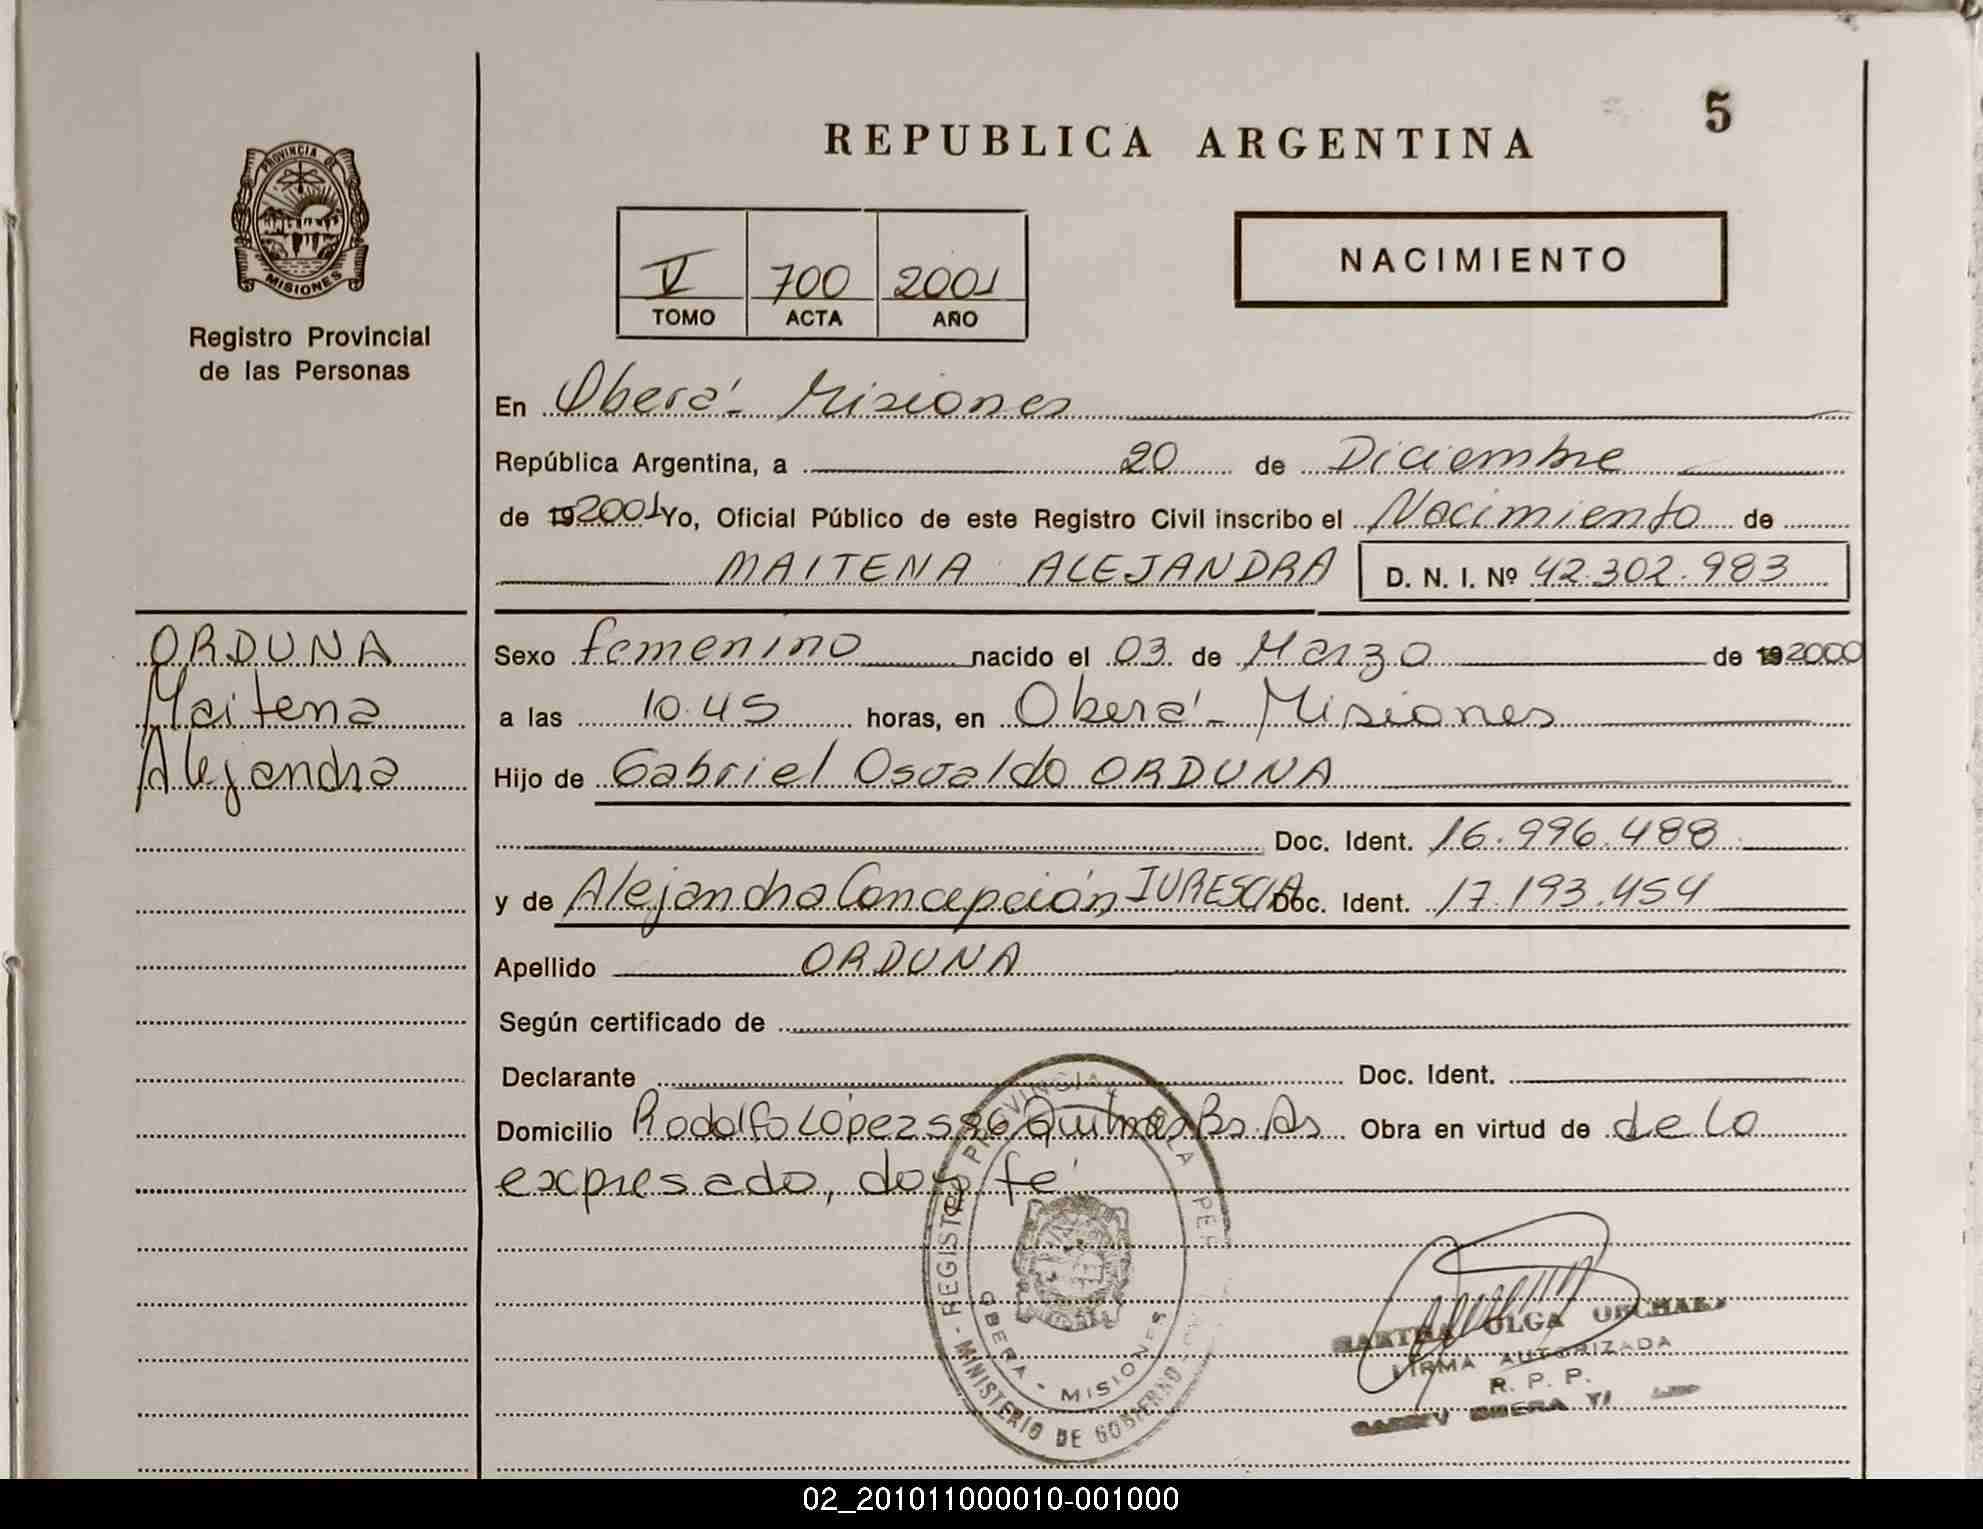 5
REPUBLICA ARGENTINA
PROVINCIA DE
MISIONES
Registro Provincial
de las Personas
V 700 2001
TOMO ACTA AÑO
NACIMIENTO
En Oberá - Misiones
República Argentina, a 20 de Diciembre
de 19 2001 Yo, Oficial Público de este Registro Civil inscribo el Nacimiento de
MAITENA ALEJANDRA D. N. I. Nº 42.302.983
ORDUNA
Maitena
Alejandra
Sexo femenino nacido el 03 de Marzo de 19 2000
a las 10.45 horas, en Oberá - Misiones
Hijo de Gabriel Osvaldo ORDUNA
Doc. Ident. 16.996.488
y de Alejandra Concepción IURESCIA Doc. Ident. 17.193.454
Apellido ORDUNA
Según certificado de
Declarante Doc. Ident.
Domicilio Rodolfo López 586 Quilmes Bs. As Obra en virtud de de lo
expresado, doy fe
REGISTRO PROVINCIAL DE LA PER
OBERA - MISIONES
MINISTERIO DE GOBIERNO
OLGA
FIRMA AUTORIZADA
R. P. P.
OBERA
02_201011000010-001000